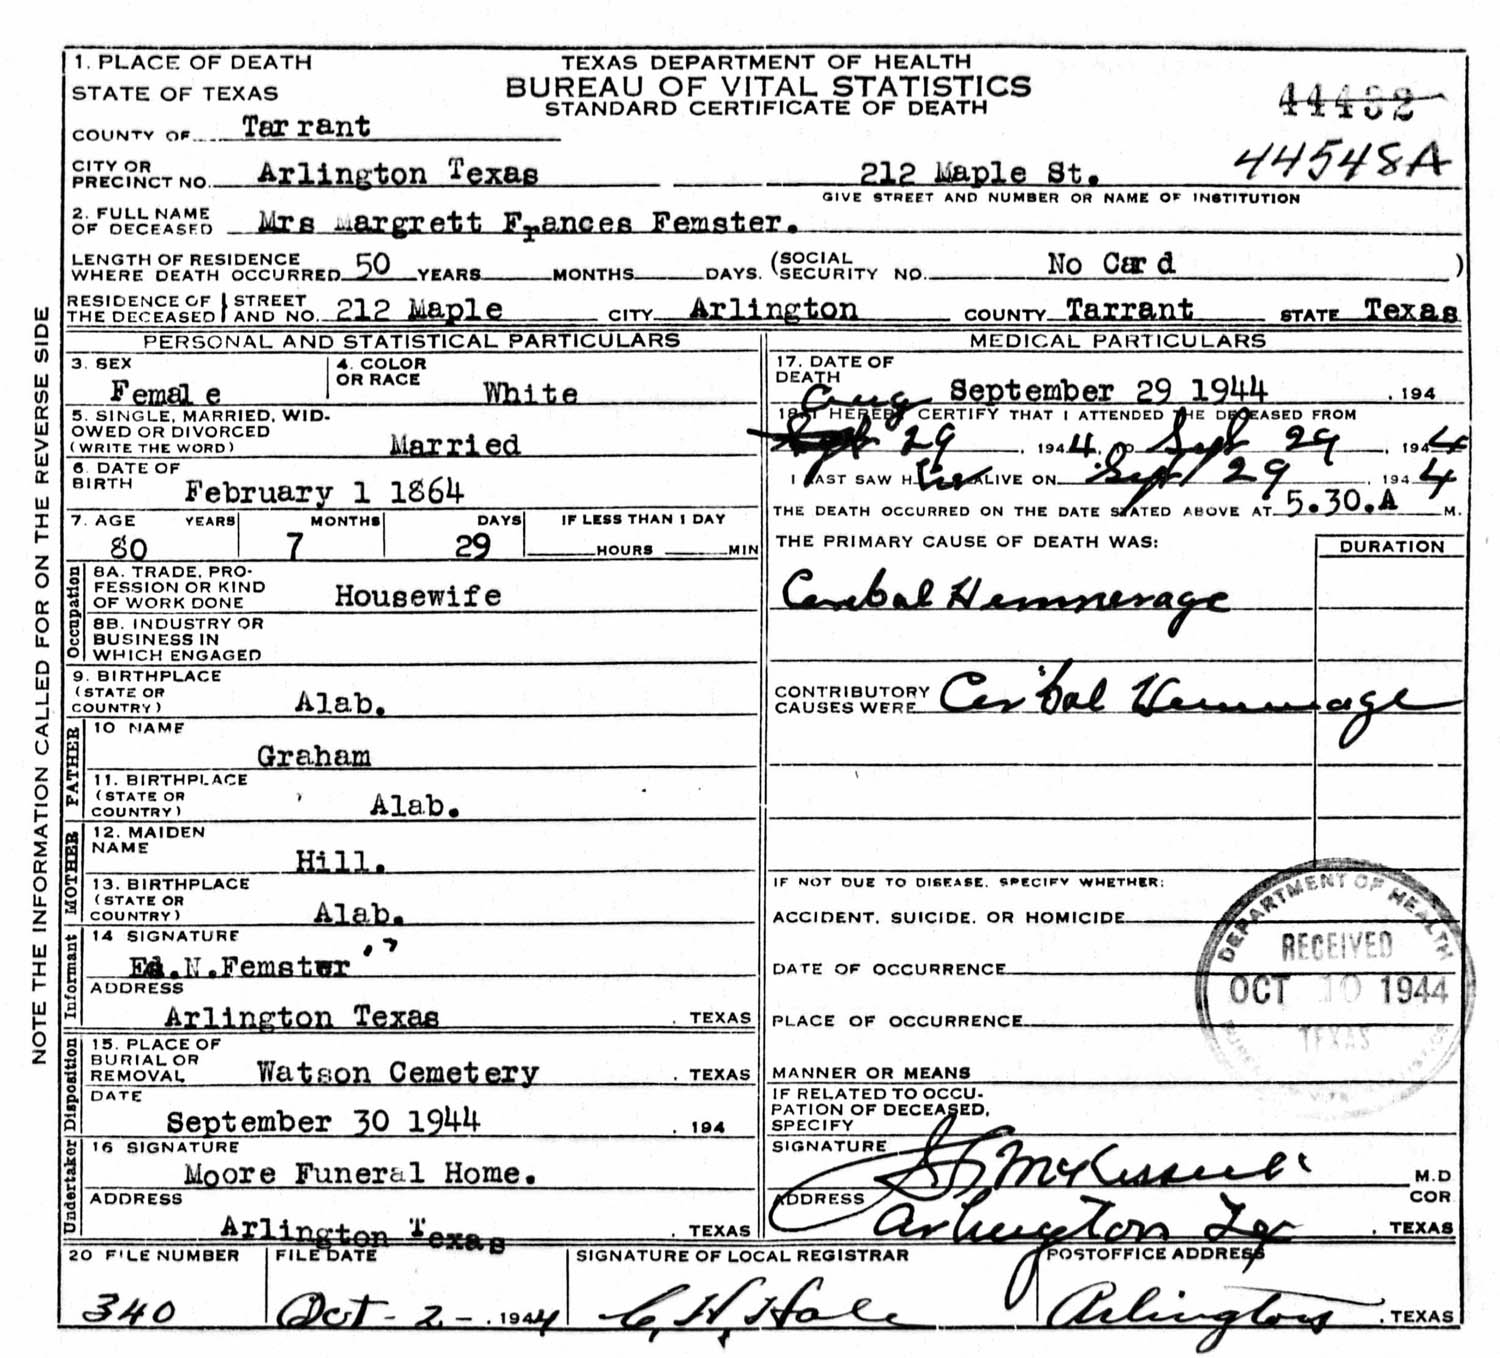 1. PLACE OF DEATH
STATE OF TEXAS
TEXAS DEPARTMENT OF HEALTH
BUREAU OF VITAL STATISTICS
STANDARD CERTIFICATE OF DEATH
44548A
COUNTY OF Tarrant
CITY OR PRECINCT NO. Arlington Texas 212 Maple St.
GIVE STREET AND NUMBER OR NAME OF INSTITUTION
2. FULL NAME OF DECEASED Mrs Margrett Frances Femster.
LENGTH OF RESIDENCE WHERE DEATH OCCURRED 50 YEARS MONTHS DAYS. (SOCIAL SECURITY NO. No Card )
RESIDENCE OF THE DECEASED STREET AND NO. 212 Maple CITY Arlington COUNTY Tarrant STATE Texas
NOTE THE INFORMATION CALLED FOR ON THE REVERSE SIDE
PERSONAL AND STATISTICAL PARTICULARS
3. SEX Female
4. COLOR OR RACE White
5. SINGLE, MARRIED, WIDOWED OR DIVORCED (WRITE THE WORD) Married
6. DATE OF BIRTH February 1 1864
7. AGE YEARS MONTHS DAYS IF LESS THAN 1 DAY
80 7 29 HOURS MIN
Occupation
8A. TRADE, PROFESSION OR KIND OF WORK DONE Housewife
8B. INDUSTRY OR BUSINESS IN WHICH ENGAGED
9. BIRTHPLACE (STATE OR COUNTRY) Alab.
FATHER
10 NAME Graham
11. BIRTHPLACE (STATE OR COUNTRY) Alab.
MOTHER
12. MAIDEN NAME Hill.
13. BIRTHPLACE (STATE OR COUNTRY) Alab.
Informant
14 SIGNATURE Ed.N.Femster
ADDRESS Arlington Texas . TEXAS
Disposition
15. PLACE OF BURIAL OR REMOVAL Watson Cemetery . TEXAS
DATE September 30 1944 . 194
Undertaker
16 SIGNATURE Moore Funeral Home.
ADDRESS Arlington Texas . TEXAS
MEDICAL PARTICULARS
17. DATE OF DEATH September 29 1944 . 194
18. I HEREBY CERTIFY THAT I ATTENDED THE DECEASED FROM
Aug 29, 1944, TO Sept 29, 1944
I LAST SAW HER ALIVE ON Sept 29, 1944
THE DEATH OCCURRED ON THE DATE STATED ABOVE AT 5.30.A M.
THE PRIMARY CAUSE OF DEATH WAS: DURATION
Cerebal Hemmerage
CONTRIBUTORY CAUSES WERE Cer'bal Hemmrage
IF NOT DUE TO DISEASE, SPECIFY WHETHER:
ACCIDENT, SUICIDE, OR HOMICIDE
DATE OF OCCURRENCE
PLACE OF OCCURRENCE
MANNER OR MEANS
DEPARTMENT OF HEALTH
RECEIVED
OCT 10 1944
TEXAS
IF RELATED TO OCCUPATION OF DECEASED, SPECIFY
SIGNATURE M.D
COR
ADDRESS Arlington Tex . TEXAS
20 FILE NUMBER 340
FILE DATE Oct - 2 - . 1944
SIGNATURE OF LOCAL REGISTRAR C. H. Hale
POSTOFFICE ADDRESS Arlington . TEXAS